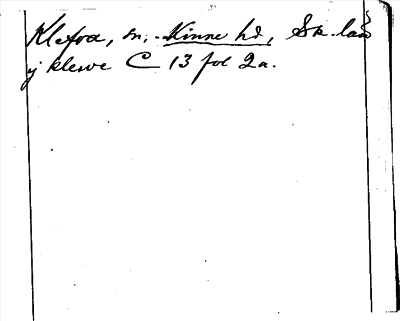 Klefva, sn, Kinne hd, Sk. län
j klewe C 13 fol 2a.